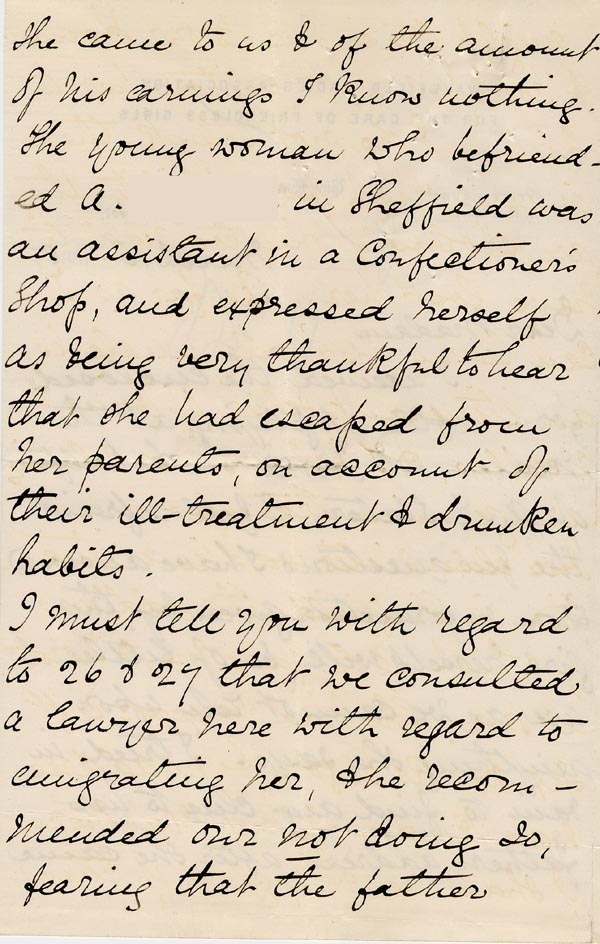 she came to us & of the amount
of his earnings I know nothing.
The young woman who befriend-
ed A. in Sheffield was
an assistant in a Confectioner's
Shop, and expressed herself
as being very thankful to hear
that she had escaped from
her parents, on account of
their ill-treatment & drunken
habits.
I must tell you with regard
to 26 & 27 that we consulted
a lawyer here with regard to
emigrating her, & he recom-
mended our not doing so,
fearing that the father